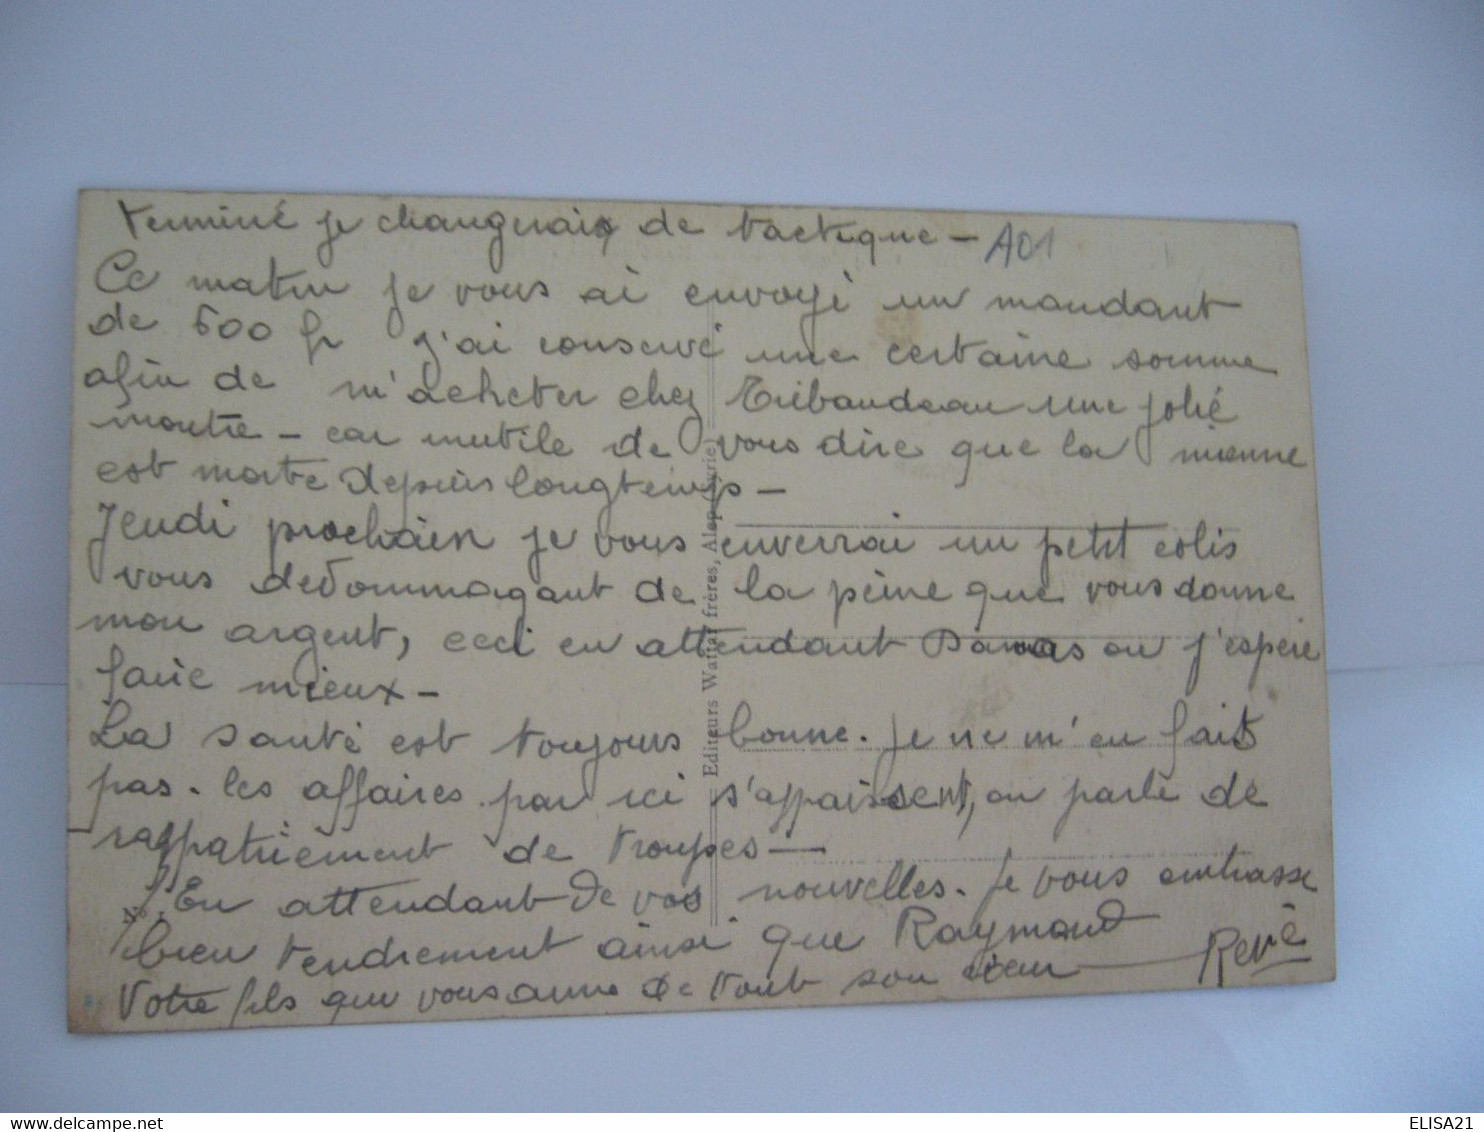 terminé je changerais de tactique - A01
Ce matin je vous ai envoyé un mandant
de 600 fr J'ai conservé une certaine somme
afin de m'acheter chez Tribaudeau une jolie
montre - car inutile de vous dire que la mienne
est morte depuis longtemps -
Jeudi prochain je vous enverrai un petit colis
vous dedommagant de la peine que vous donne
mon argent, ceci en attendant Damas ou j'espere
faire mieux -
La santé est toujours bonne. Je ne m'en fait
pas. les affaires par ici s'appaissent, on parle de
rappatriement de troupes -
En attendant de vos nouvelles. Je vous embrasse
bien tendrement ainsi que Raymond
Votre fils qui vous aime de tout son cœur - René
Editeurs Wattar frères, Alep (Syrie)
N°
ELISA21
delcampe.net